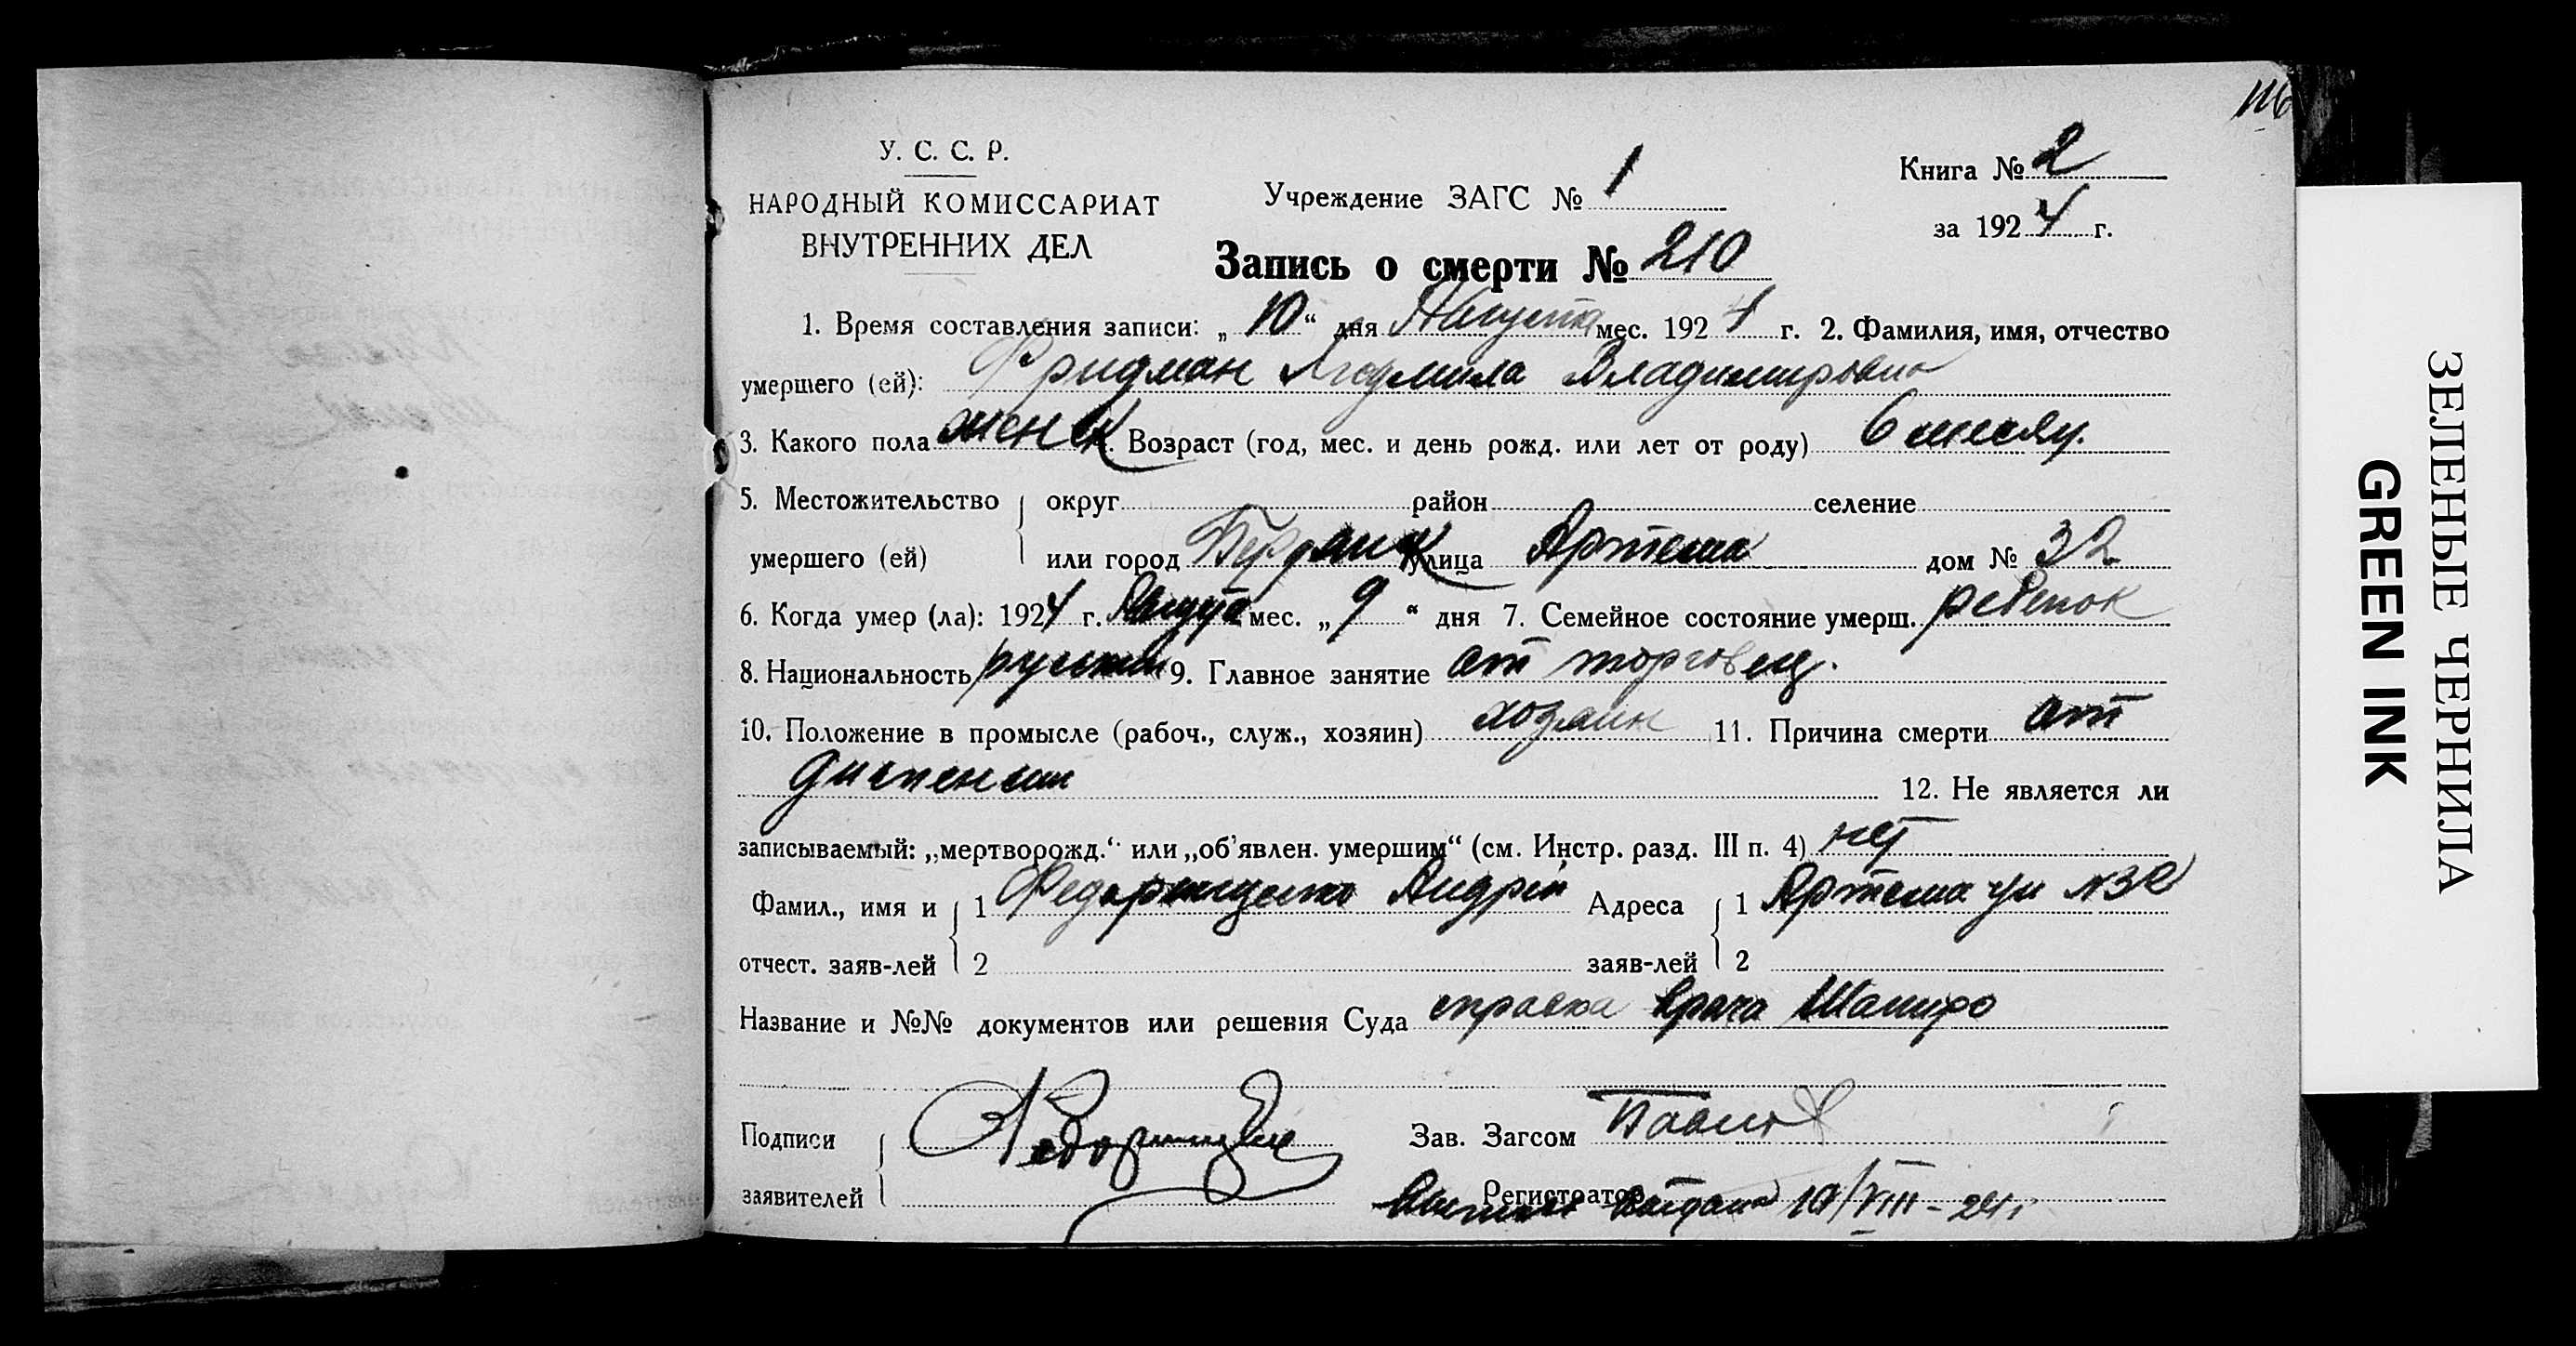 116
У. С. С. Р.
НАРОДНЫЙ КОМИССАРИАТ
ВНУТРЕННИХ ДЕЛ
Учреждение ЗАГС № 1
Книга № 2
за 1924 г.
Запись о смерти № 210
1. Время составления записи: „10“ дня Августа мес. 1924 г. 2. Фамилия, имя, отчество
умершего (ей): Фридман Людмила Владимировна
3. Какого пола женск. Возраст (год, мес. и день рожд. или лет от роду) 6 месяц.
5. Местожительство округ район селение
умершего (ей) или город Бердянск улица Артема дом № 32
6. Когда умер (ла): 1924 г. Августа мес. „9“ дня 7. Семейное состояние умерш. ребенок
8. Национальность русский 9. Главное занятие от торговец.
10. Положение в промысле (рабоч., служ., хозяин) хозяин 11. Причина смерти от
диспенсии 12. Не является ли
записываемый: „мертворожд.“ или „об'явлен. умершим“ (см. Инстр. разд. III п. 4) нет
Фамил., имя и 1 Андрей Адреса 1 Артема ул №32
отчест. заяв-лей 2 заяв-лей 2
Название и №№ документов или решения Суда справка врача Шапиро
Подписи Зав. Загсом
заявителей Регистратор 10/VIII-24 г.
ЗЕЛЕНЫЕ ЧЕРНИЛА
GREEN INK